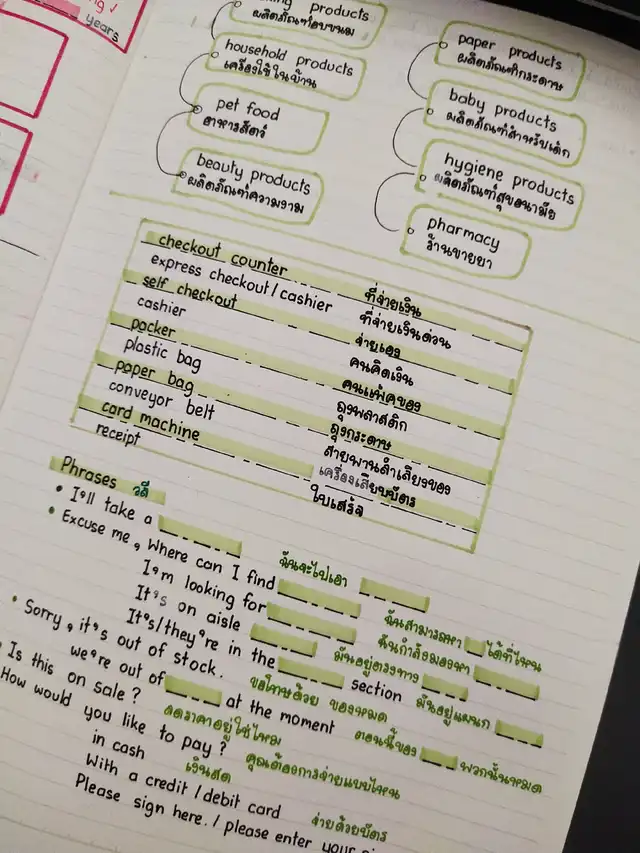 years
products
ผลิตภัณฑ์อบขนม
household products
เครื่องใช้ในบ้าน
pet food
อาหารสัตว์
beauty products
ผลิตภัณฑ์ความงาม
paper products
ผลิตภัณฑ์กระดาษ
baby products
ผลิตภัณฑ์สำหรับเด็ก
hygiene products
ผลิตภัณฑ์สุขอนามัย
pharmacy
ร้านขายยา
checkout counter ที่จ่ายเงิน
express checkout/cashier ที่จ่ายเงินด่วน
self checkout จ่ายเอง
cashier คนคิดเงิน
packer คนแพ็คของ
plastic bag ถุงพลาสติก
paper bag ถุงกระดาษ
conveyor belt สายพานลำเลียงของ
card machine เครื่องเสียบบัตร
receipt ใบเสร็จ
Phrases วลี
• I'll take a ฉันจะไปเอา
• Excuse me, Where can I find ฉันสามารถหา ได้ที่ไหน
I'm looking for ฉันกำลังมองหา
It's on aisle มันอยู่ตรงทาง
It's/they're in the section มันอยู่แผนก
• Sorry, it's out of stock. ขอโทษด้วย ของหมด
we're out of at the moment ตอนนี้ของ พวกนั้นหมด
Is this on sale? ลดราคาอยู่ใช่ไหม
How would you like to pay? คุณต้องการจ่ายแบบไหน
in cash เงินสด
With a credit/debit card จ่ายด้วยบัตร
Please sign here. / please enter your